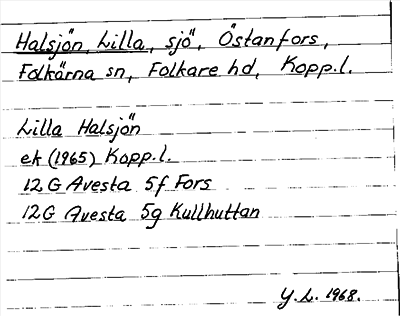 Halsjön, Lilla, sjö, Östanfors,
Folkärna sn, Folkare hd, Kopp.l.
Lilla Halsjön
ek (1965) Kopp.l.
12 G Avesta 5f Fors
12 G Avesta 5g Kullhuttan
Y.L. 1968.